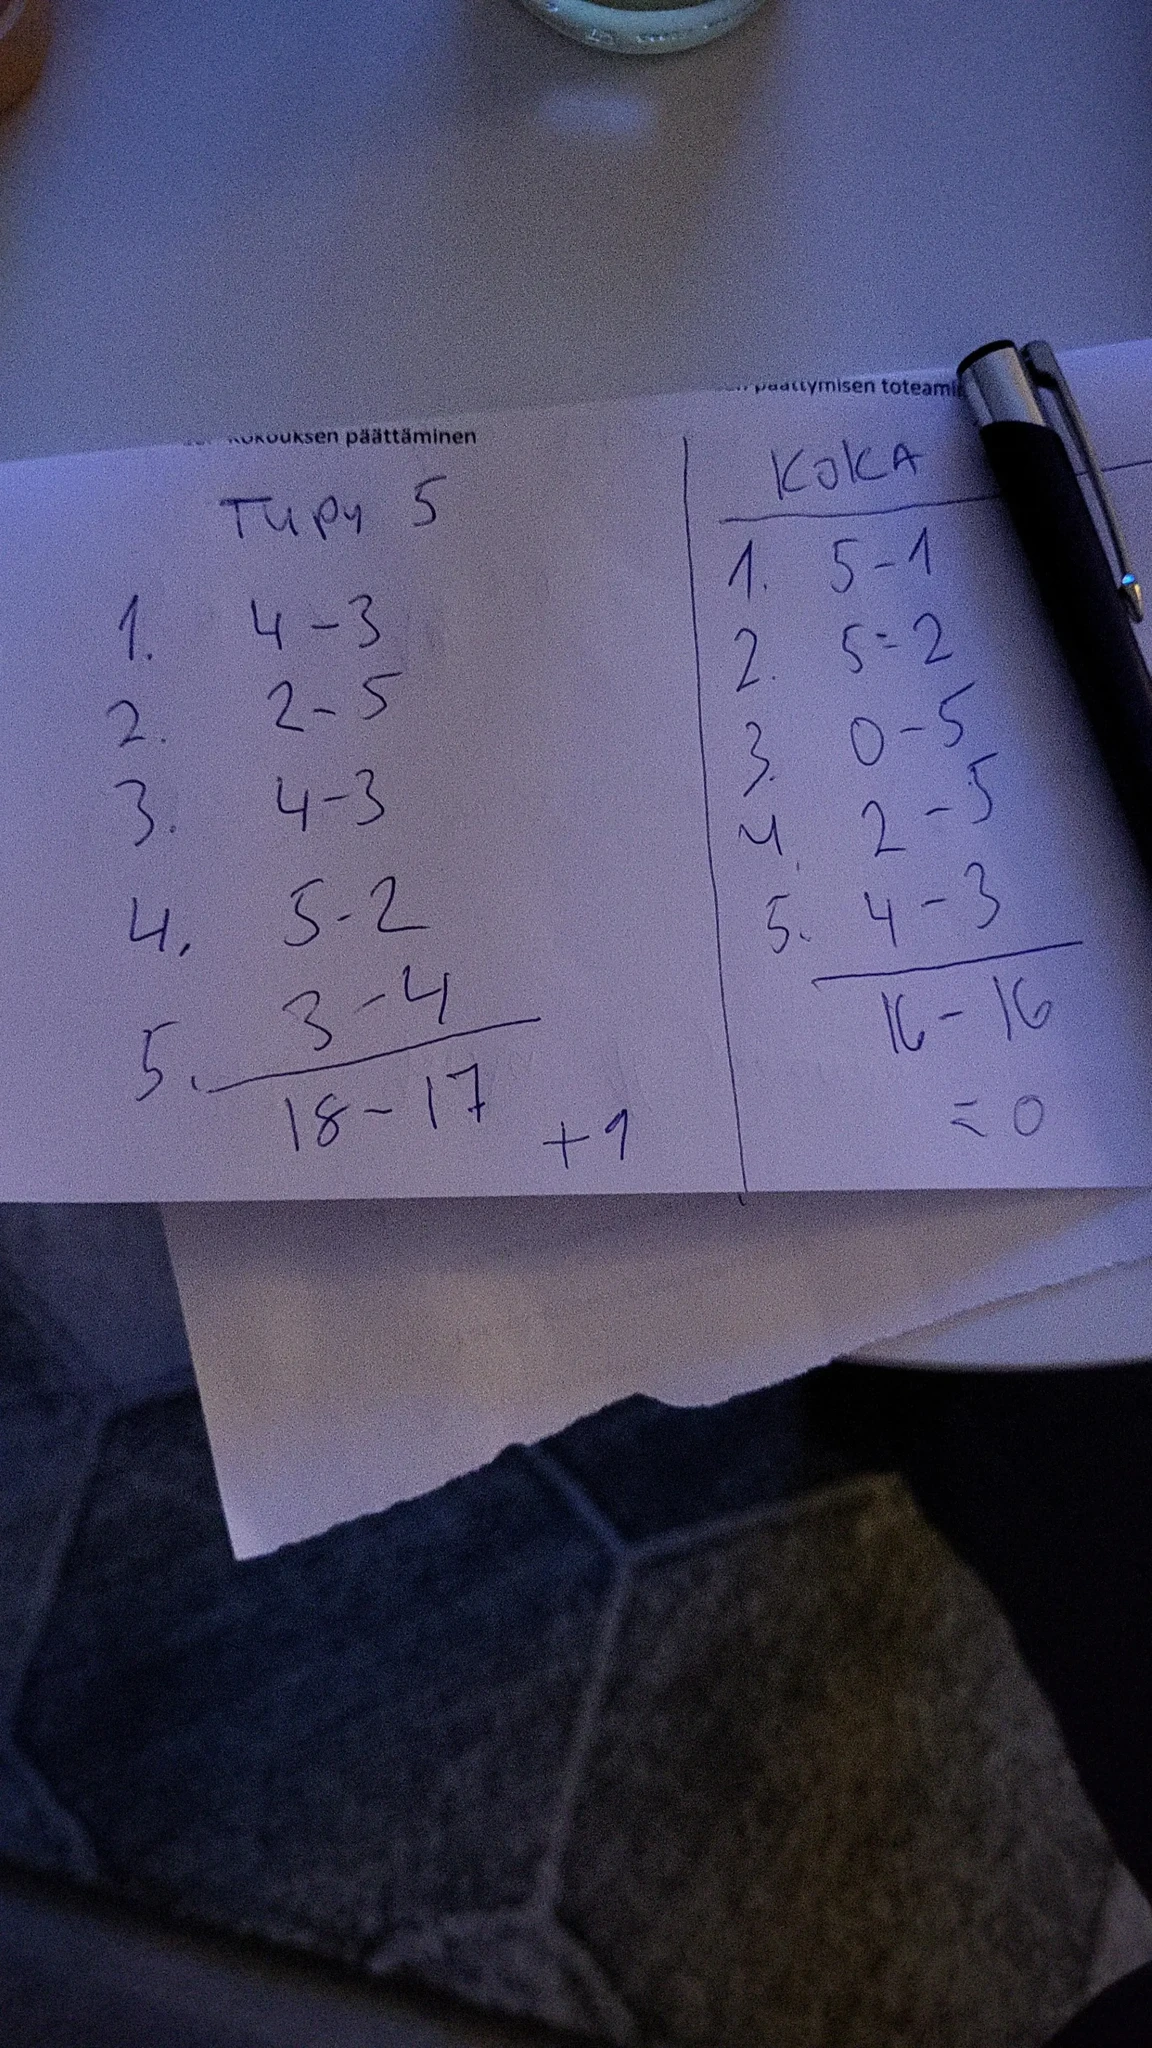 kokouksen päättäminen
Tupy 5
1. 4-3
2. 2-5
3. 4-3
4. 5-2
5. 3-4
18-17
+1
päättymisen
KOKA
1. 5-1
2. 5-2
3. 0-5
4. 2-5
5. 4-3
16-16
=0